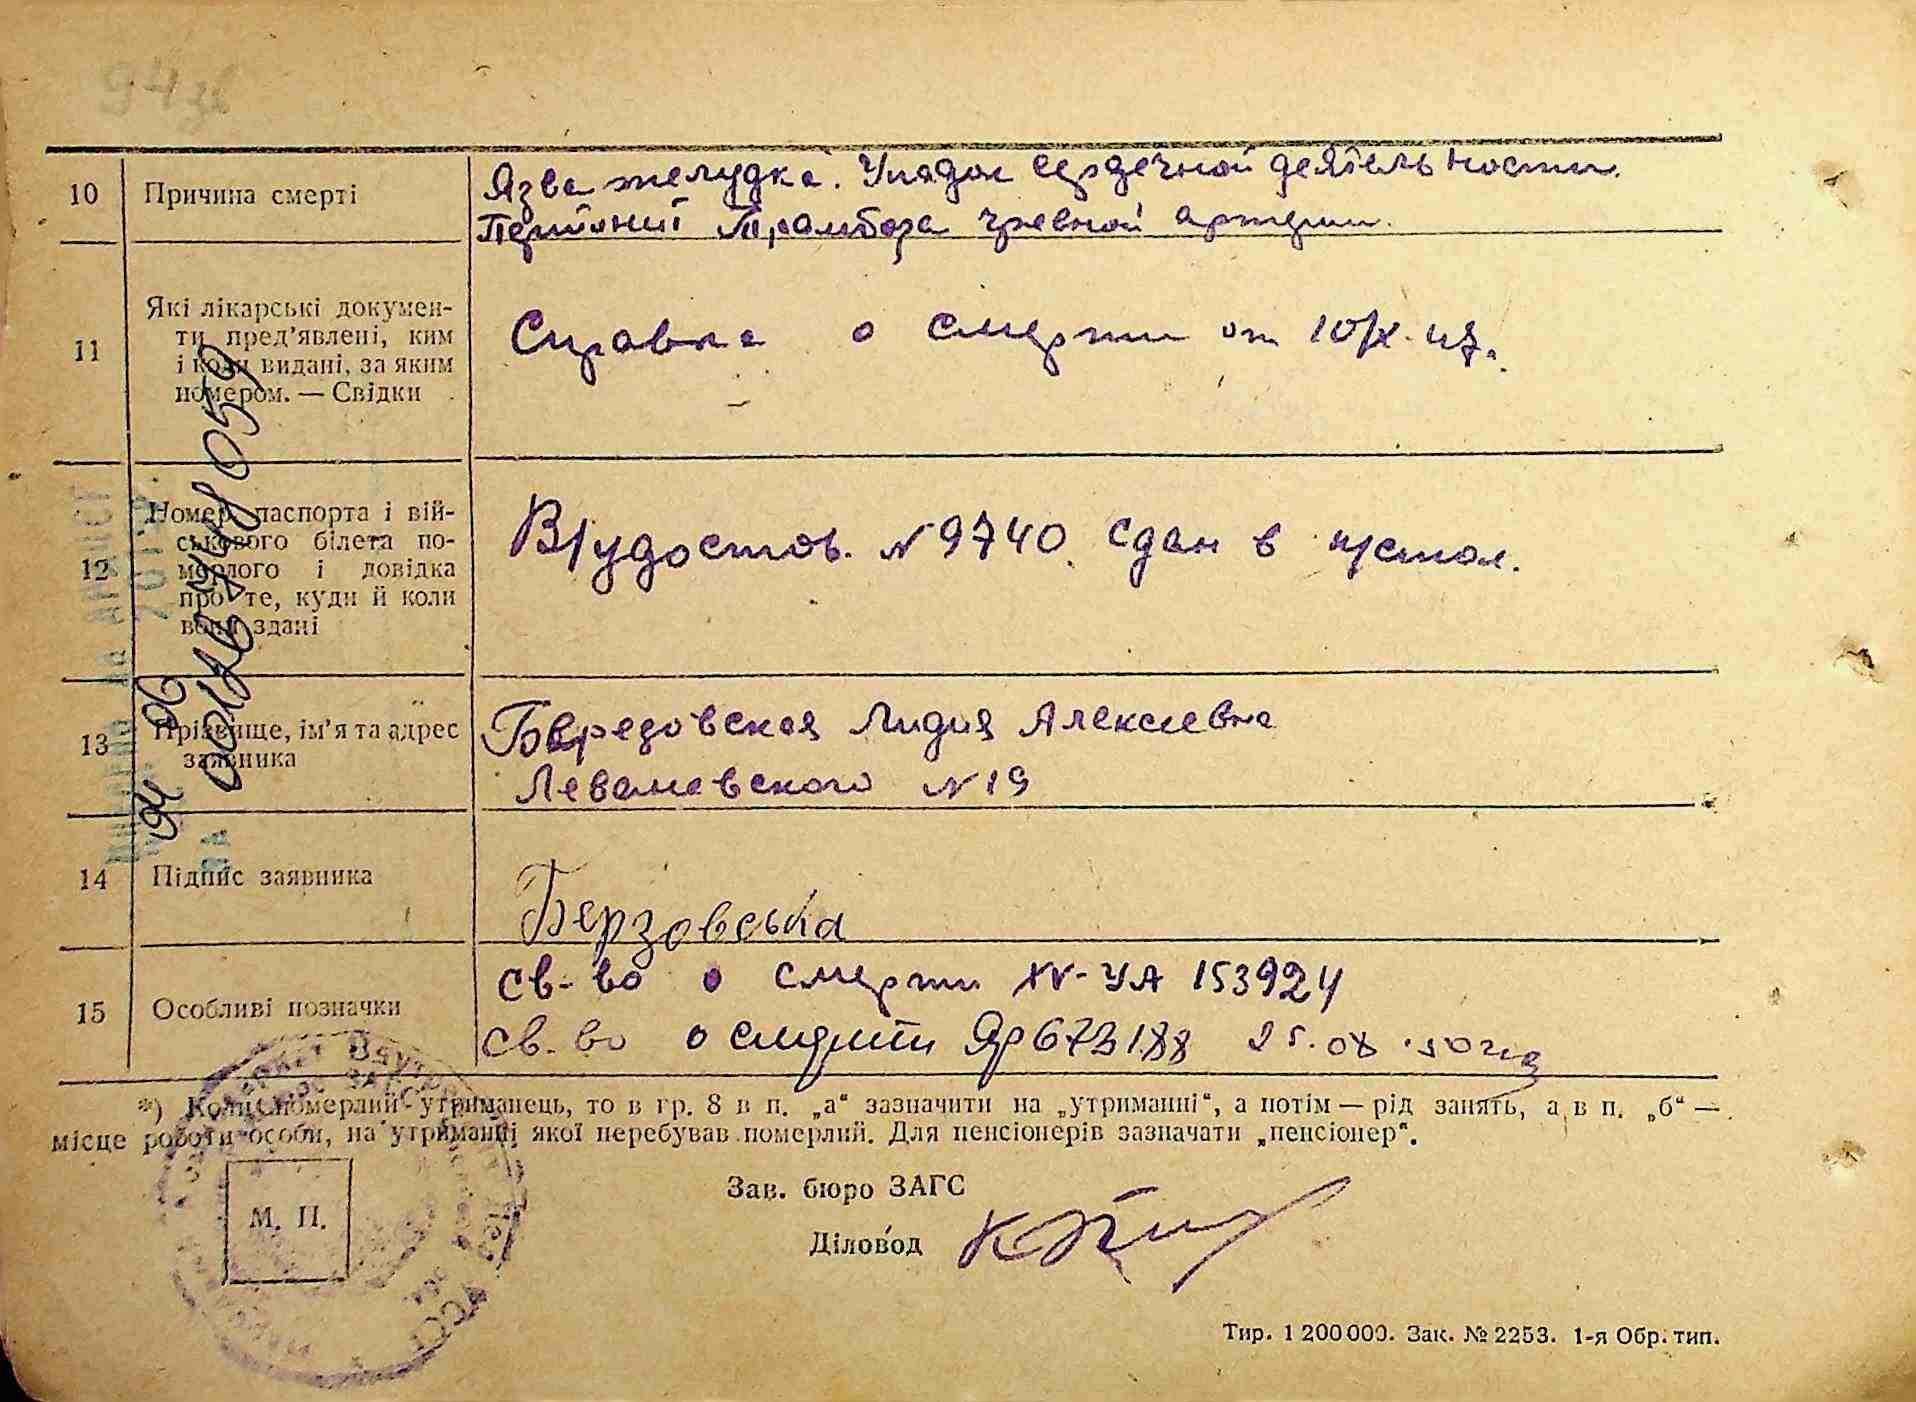 10 Причина смерті
Язва желудка. Упадок сердечной деятельности.
чревной артерии.
11 Які лікарські докумен-
ти пред’явлені, ким
і коли видані, за яким
номером. — Свідки
Справка о смерти от 10/X-47.
12 Номер паспорта і вій-
ськового білета по-
мерлого і довідка
про те, куди й коли
вони здані
В/удостов. №9740. сдан в п/стол.
13 Прізвище, ім’я та адрес
заявника
Лидия Алексеевна
Леваневского №19
14 Підпис заявника
Берзовська
15 Особливі позначки
Св-во о смерти IV-УА 153924
Св-во о смерти 673188 25.08.50
*) Коли померлий утриманець, то в гр. 8 в п. „а“ зазначити на „утриманні“, а потім — рід занять, а в п. „б“ —
місце роботи особи, на утриманні якої перебував померлий. Для пенсіонерів зазначати „пенсіонер“.
Зав. бюро ЗАГС
М. П.
Діловод
Тир. 1 200 000. Зак. № 2253. 1-я Обр. тип.